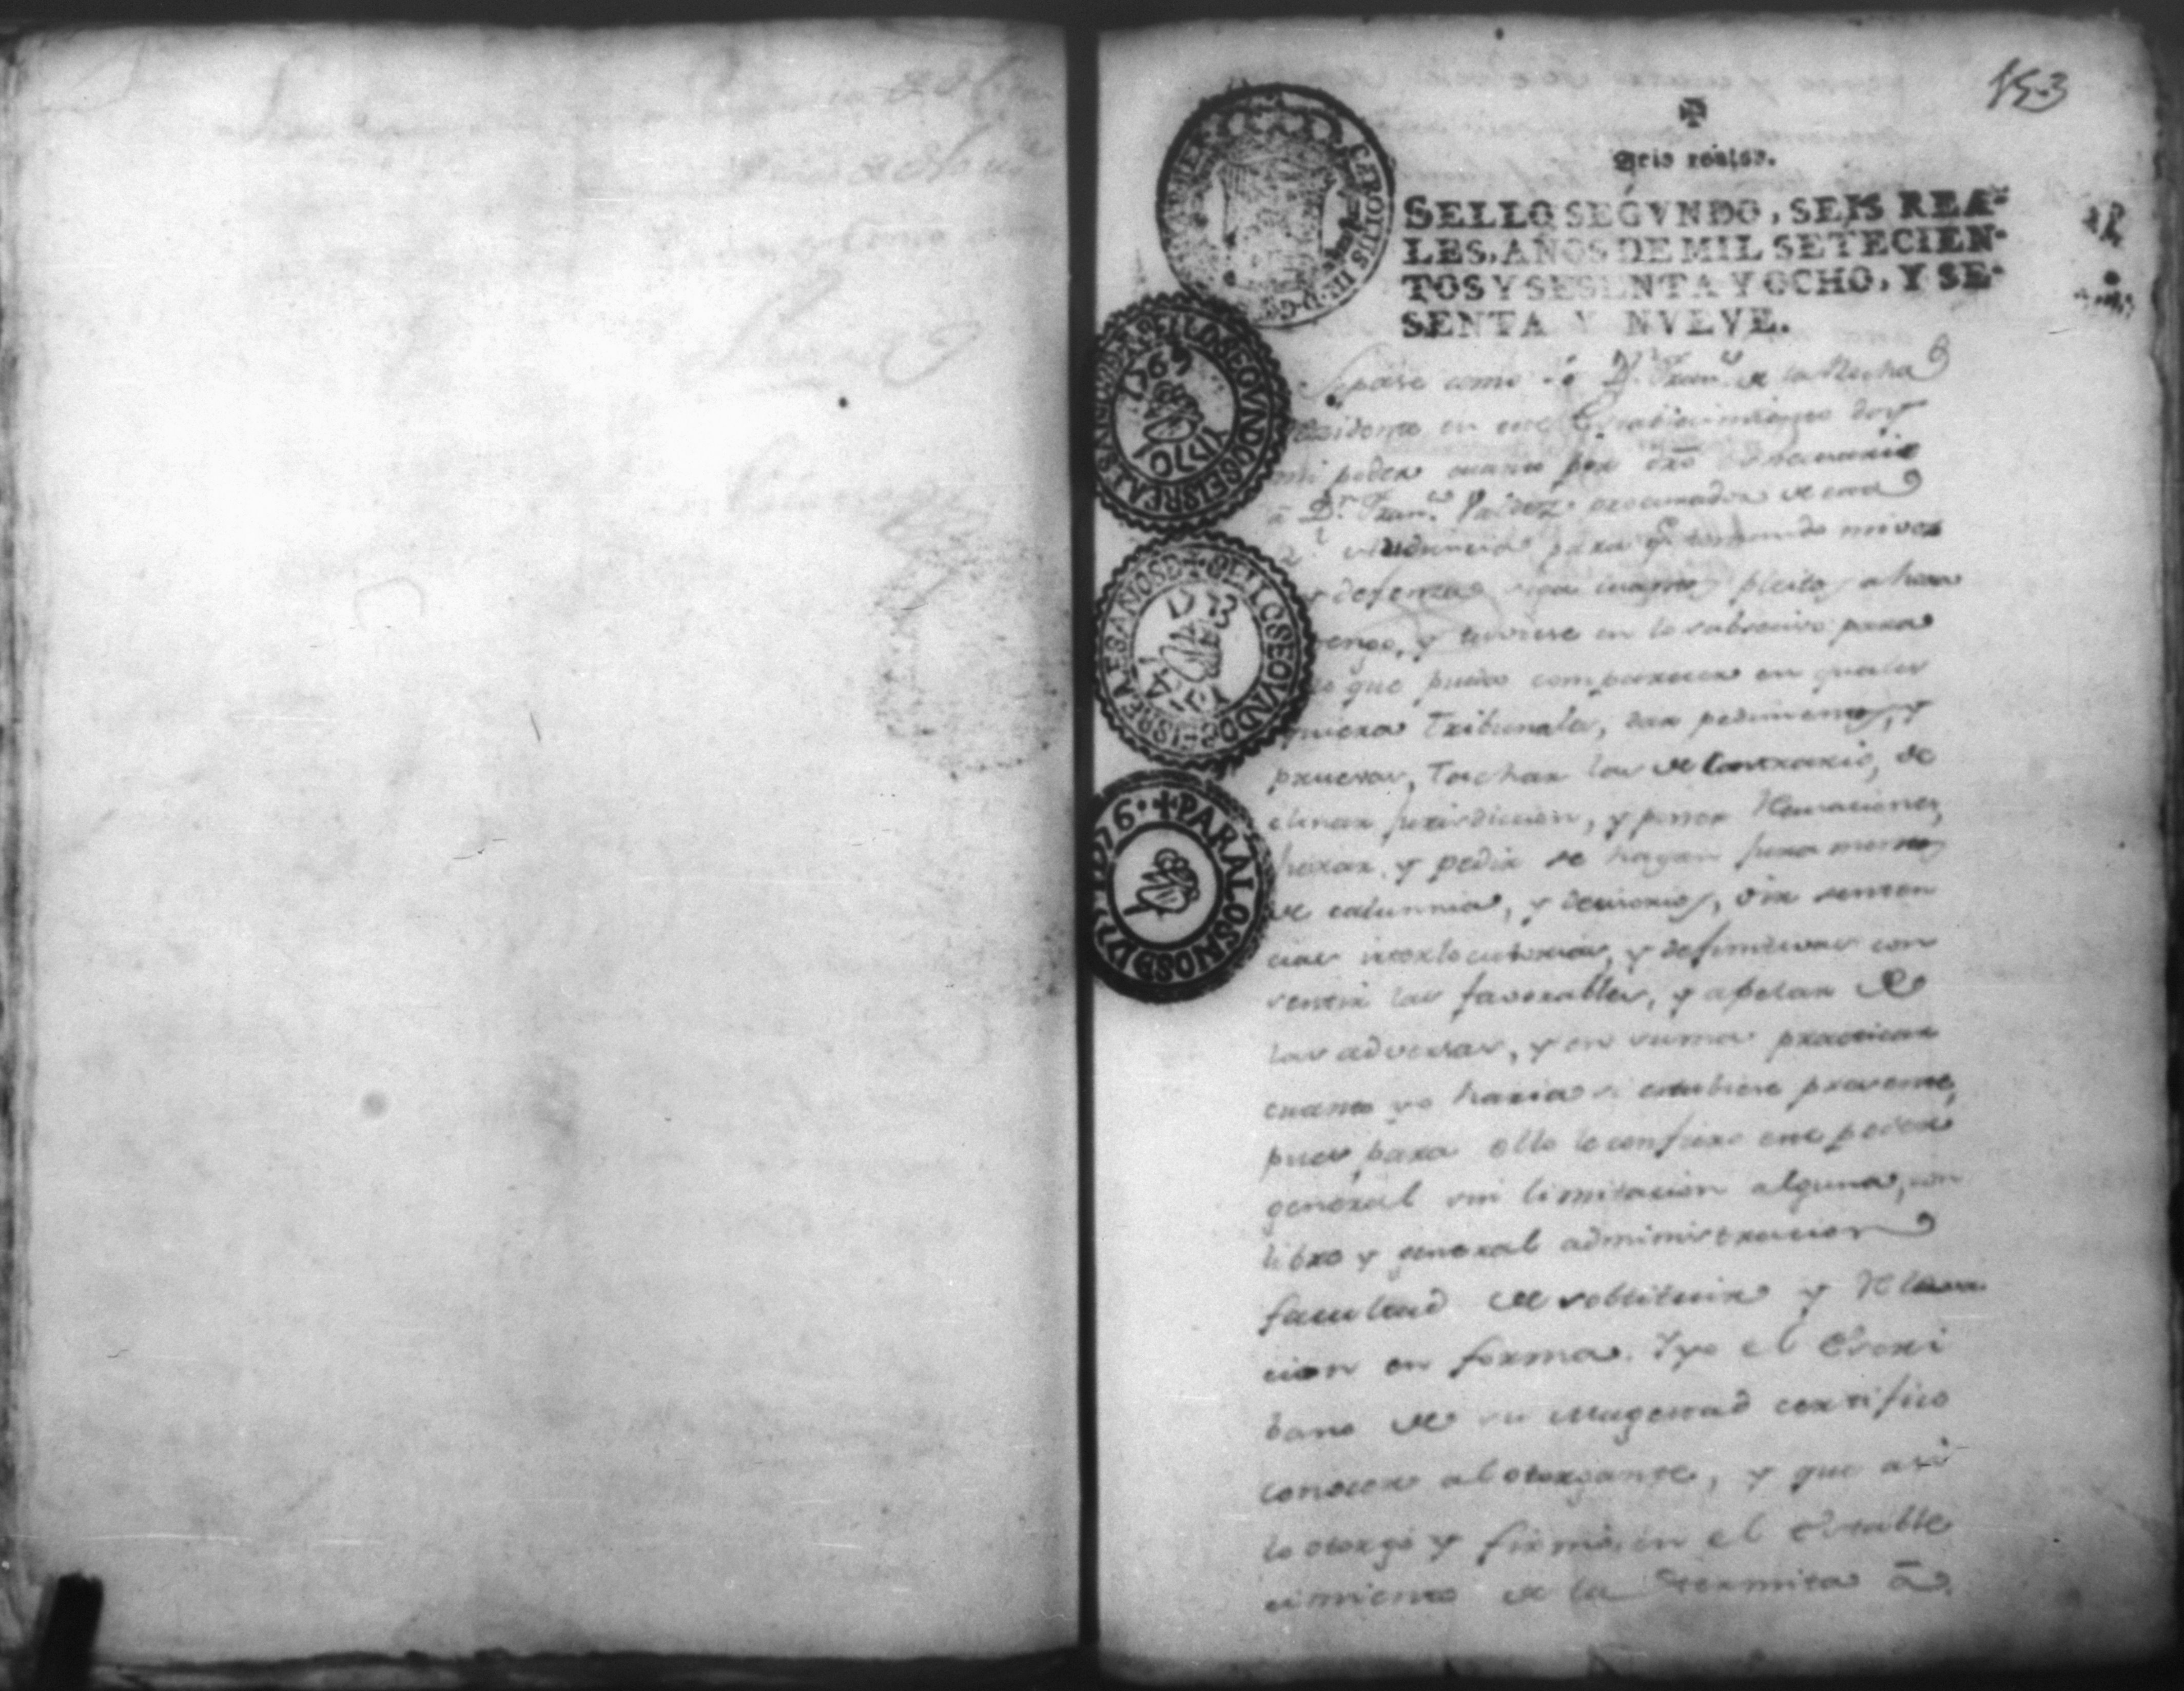 153
Seis reales.
SELLO SEGVNDO, SEIS REA-
LES, AÑOS DE MIL SETECIEN-
TOS Y SESENTA Y OCHO, Y SE-
SENTA Y NVEVE.
CAROLUS III D G
SELLO SEGVNDO SEIS REALES AÑOS D
1769
1770
SELLO SEGVNDO SEIS REALES AÑOS D
1773
1774
PARA LOS AÑOS D 1776
Sepase como Yo Dn. Franco. de la Rocha
Residente en este Establecimiento doy
mi poder quanto por dro es necesario
a Dn. Franco. procurador de esta
Rl. Audiencia para q. tomando mi voz
y defenza siga quantos pleitos ahora
tengo, y tuviese en lo subcesivo para
lo que pueda comparecer en quales
quiera Tribunales, dar pedimentos, y
pruevas, Tachar las de contrario, de
clinar jurisdiccion, y poner Recusaciones,
jurar, y pedir se hagan juramentos
de calumnia, y decisorios, oir senten
cias interlocutorias, y definitivas con
sentir las favorables, y apelar de
las adversas, y en suma practicar
quanto yo haria si estubiese presente,
pues para ello le confiero este poder
general sin limitacion alguna, con
libre y general administracion
facultad de sobstituir y Releva
cion en forma. Y yo el Escri
bano de su Magestad certifico
conocer al otorgante, y que asi
lo otorgó y firmó, en el Estable
cimiento de la Hermita á